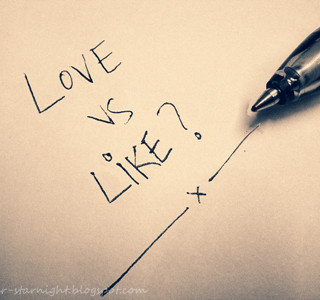 LOVE
VS
LiKE?
x
r-starnight.blogspot.com